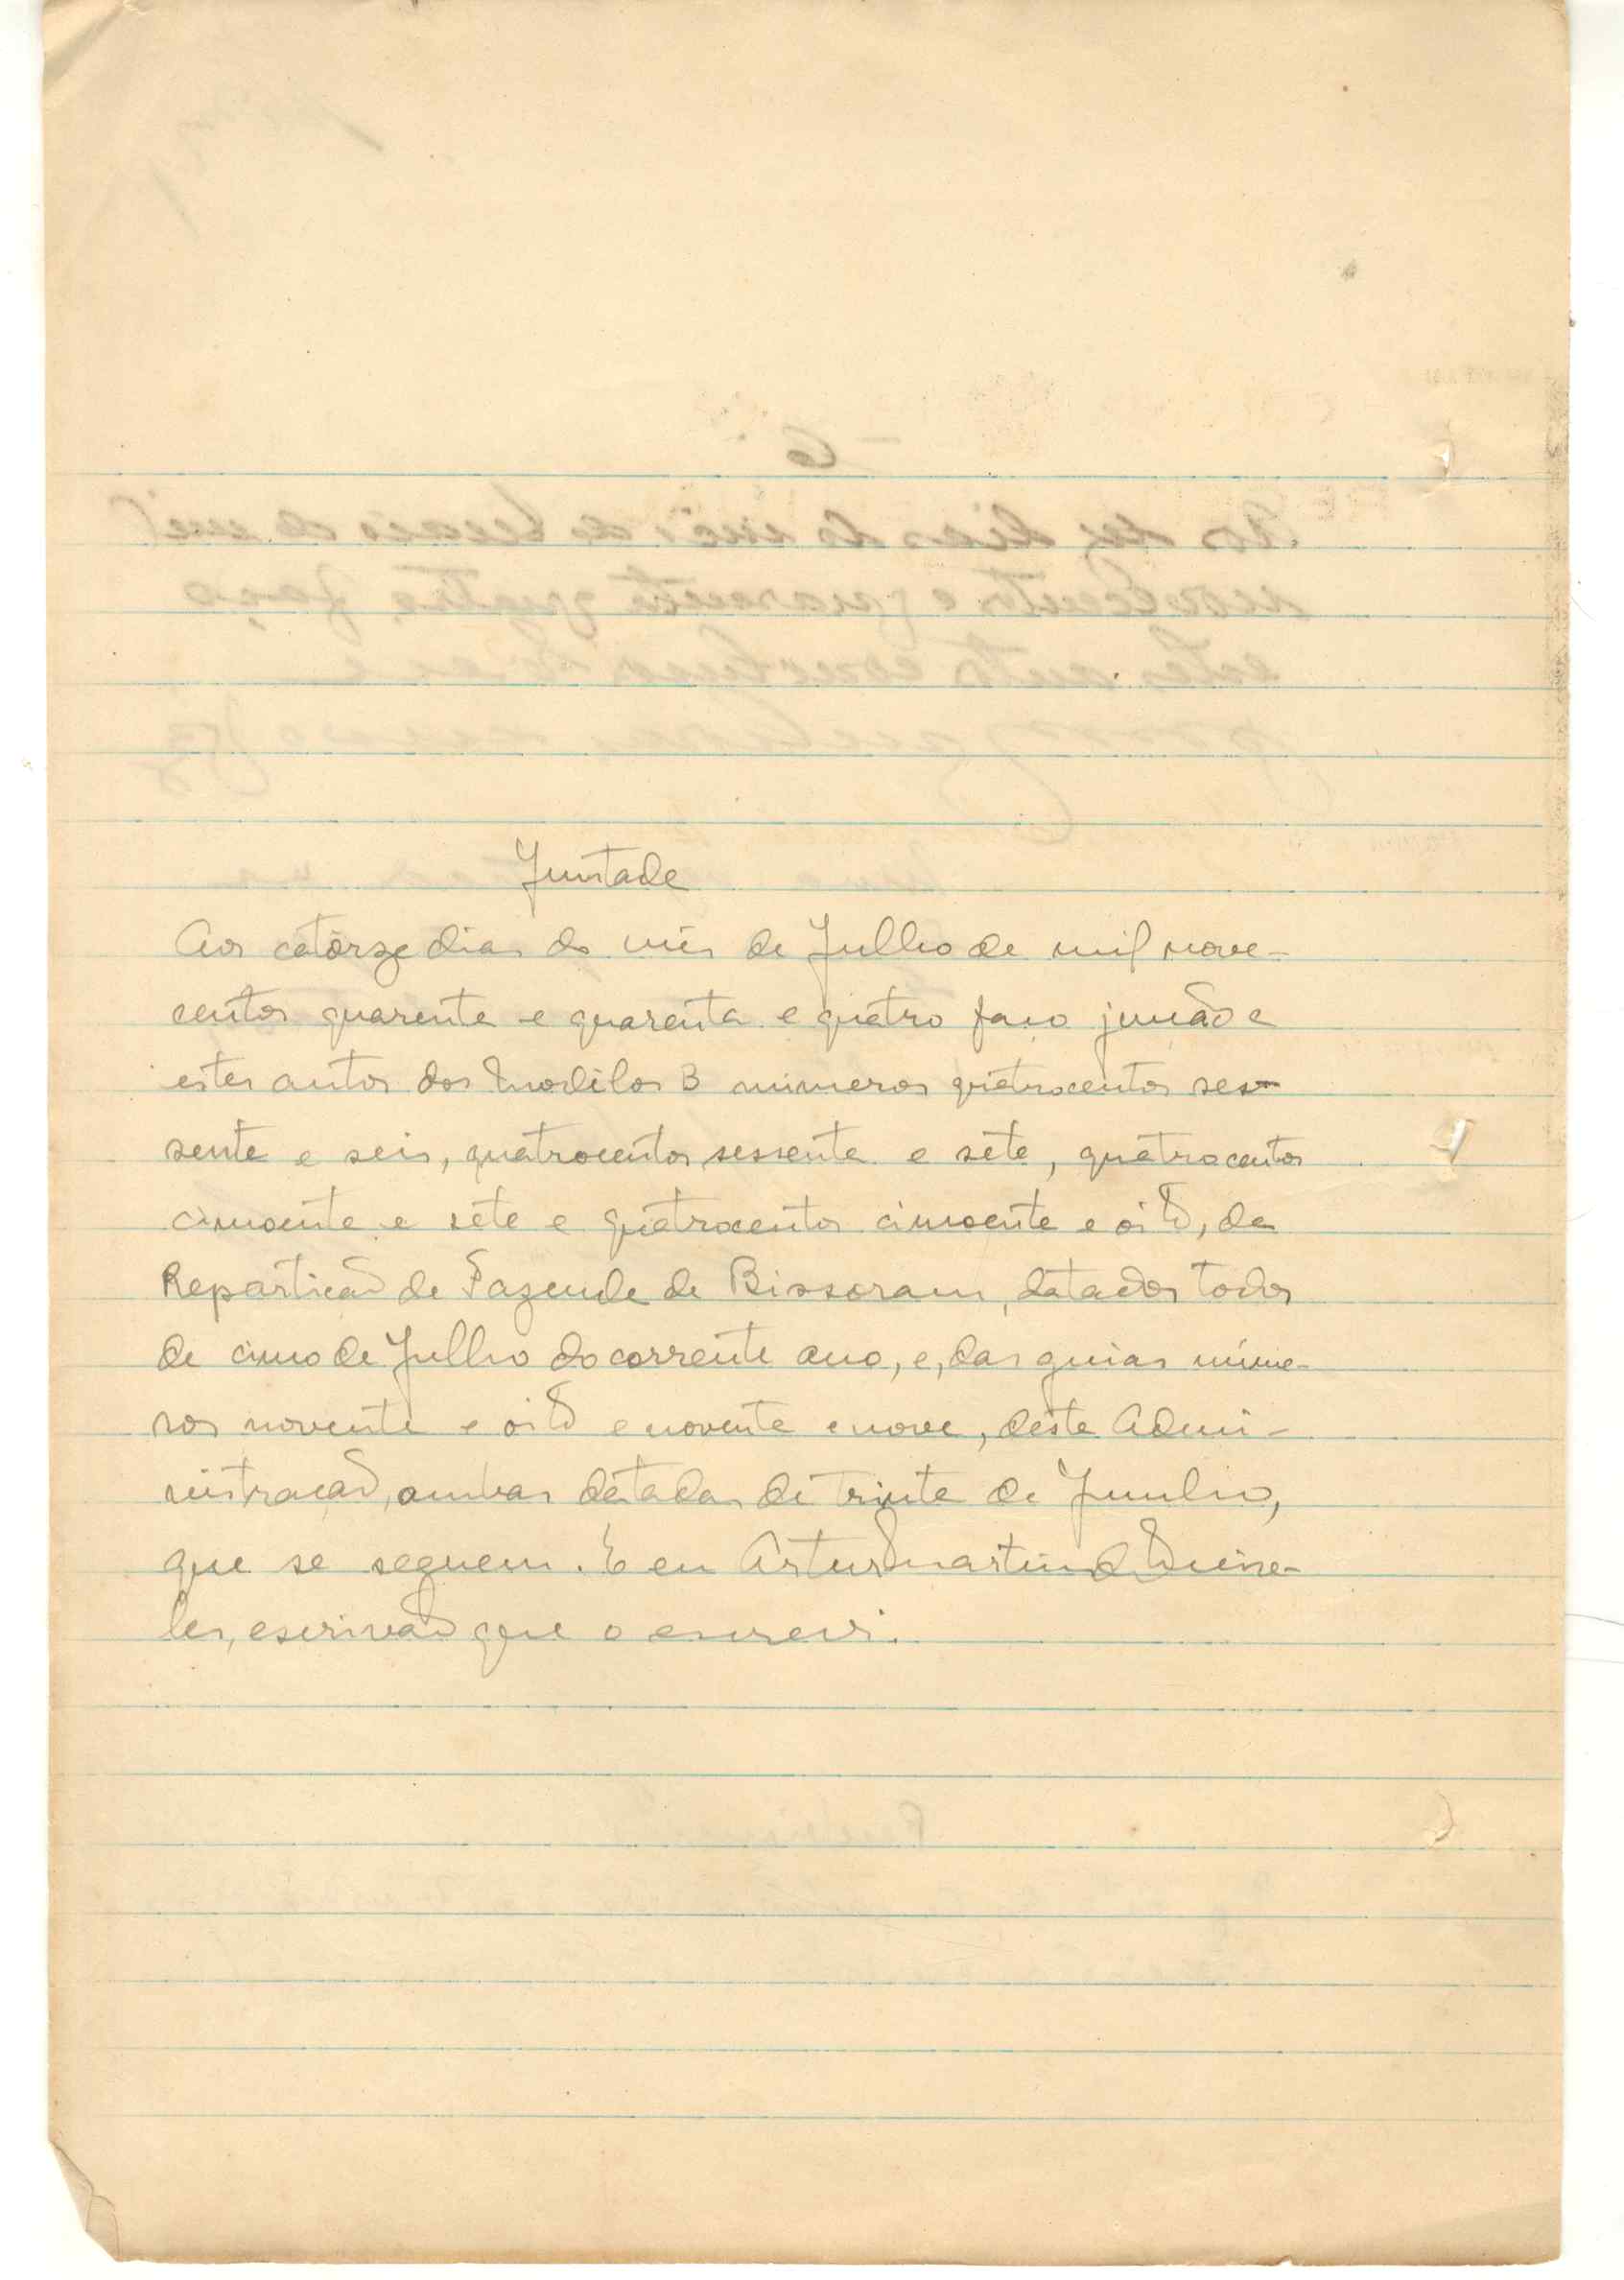 Juntada
Aos catôrze dias do mês de Julho de mil nove-
centos quarenta e quarenta e quatro faço junção a
estes autos dos modelos B números quatrocentos ses-
senta e seis, quatrocentos sessenta e sete, quatrocentos
cincoenta e sete e quatrocentos cincoenta e oito, da
Repartição de Fazenda de Bissoram, datados todos
de cinco de Julho do corrente ano, e, das guias núme-
ros noventa e oito e noventa e nove, désta Admi-
nistração, ambas datadas de trinta de Junho,
que se seguem. E eu Artur Martins de
escrivão que o escrevi.